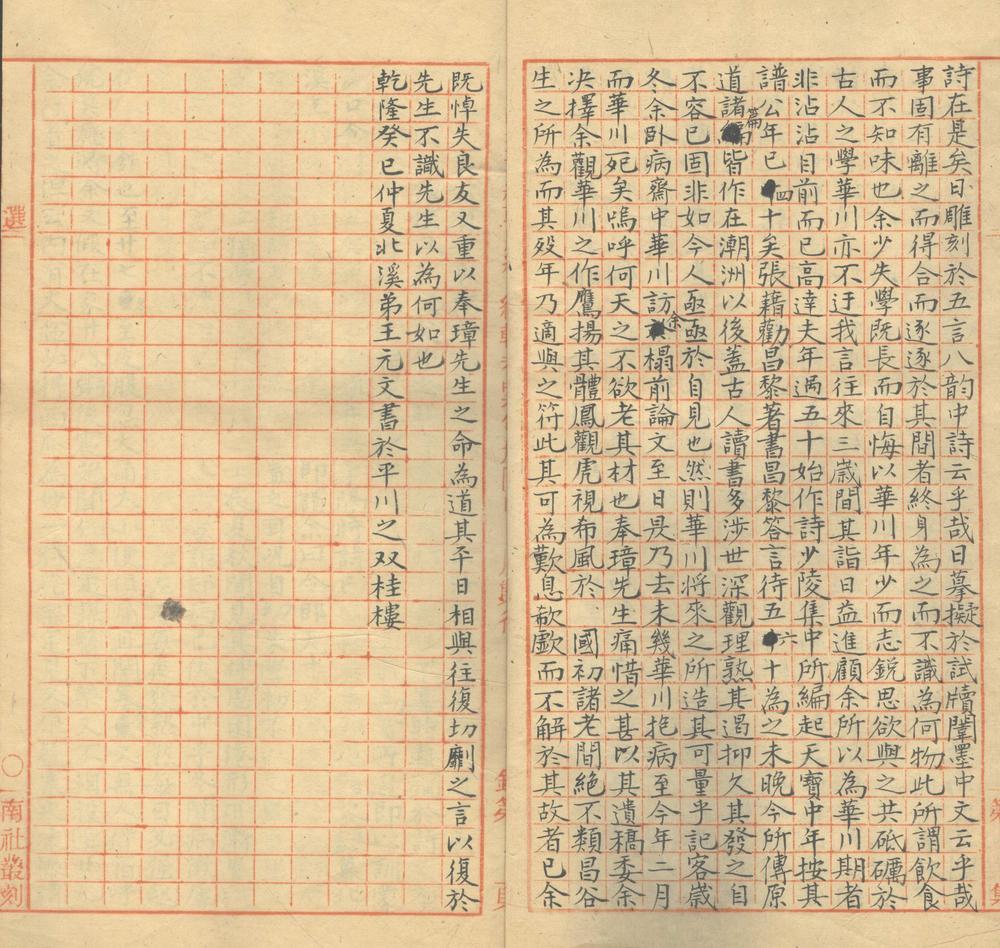 詩在是矣曰雕刻於五言八韵中詩云乎哉曰摹擬於試牘闈墨中文云乎哉
事固有離之而得合而逐逐於其間者終身為之而不識為何物此所謂飲食
而不知味也余少失學既長而自悔以華川年少而志銳思欲與之共砥礪於
古人之學華川亦不迂我言往來三歲間其詣日益進顧余所以為華川期者
非沾沾目前而已高達夫年過五十始作詩少陵集中所編起天寶中年按其
譜公年已四十矣張藉勸昌黎著書昌黎答言待五六十為之未晚今所傳原
道諸篇皆作在潮洲以後蓋古人讀書多涉世深觀理熟其遏抑久其發之自
不容已固非如今人亟亟於自見也然則華川將來之所造其可量乎記客歲
冬余卧病齋中華川訪余榻前論文至日昃乃去未幾華川抱病至今年二月
而華川死矣嗚呼何天之不欲老其材也奉璋先生痛惜之甚以其遺稿委余
决擇余觀華川之作鷹揚其體鳳觀虎視布風於 國初諸老間絕不類昌谷
生之所為而其歿年乃適與之符此其可為歎息欷歔而不解於其故者已余
既悼失良友又重以奉璋先生之命為道其平日相與往復切劘之言以復於
先生不識先生以為何如也
乾隆癸巳仲夏北溪弟王元文書於平川之双桂樓
選
〇
南社叢刻